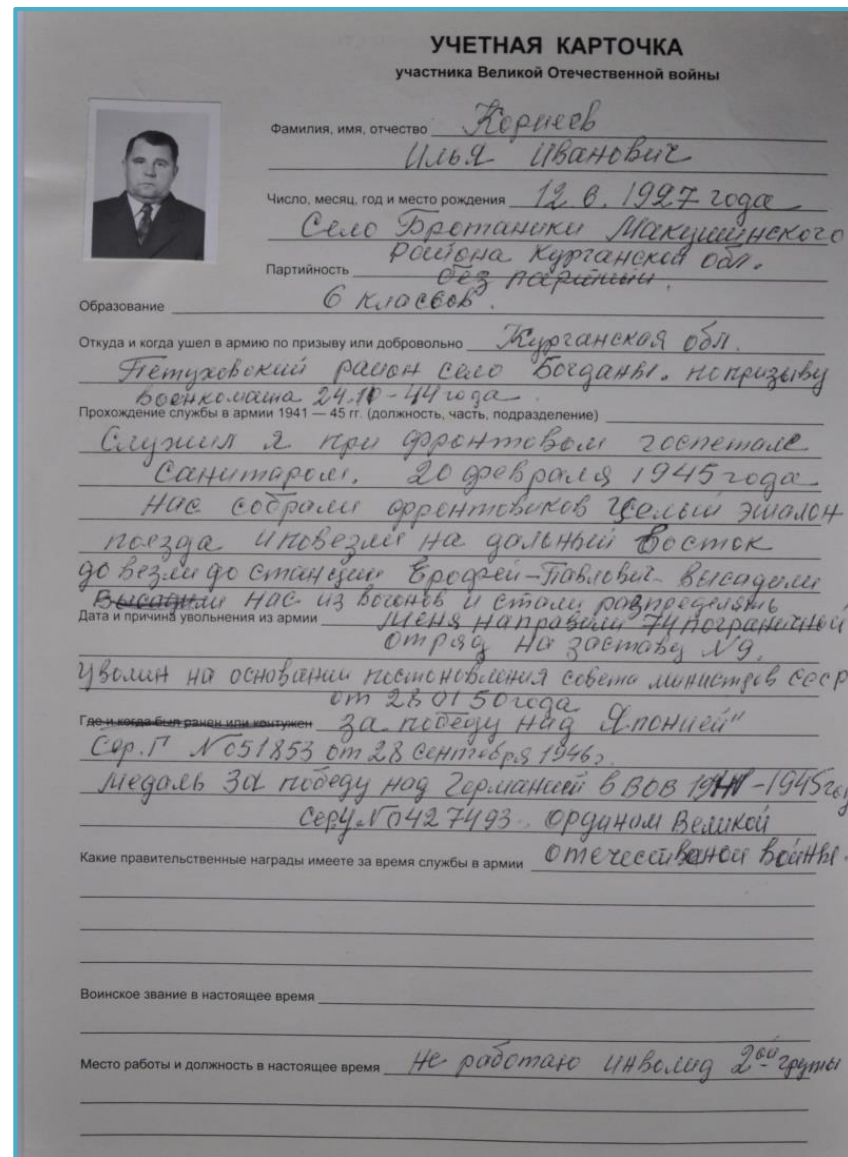 УЧЕТНАЯ КАРТОЧКА
участника Великой Отечественной войны
Фамилия, имя, отчество Корнеев
Илья Иванович
Число, месяц, год и место рождения 12. 6. 1927 года
Село Бротаники Макушинского
района Курганской обл.
Партийность без партийн.
Образование 6 классов.
Откуда и когда ушел в армию по призыву или добровольно Курганская обл.
Петуховский район село Богданы. по призыву
военкомата 24.10-44 года.
Прохождение службы в армии 1941 — 45 гг. (должность, часть, подразделение)
Служил я при фронтовом госпетале
Санитаром. 20 февраля 1945 года
Нас собрали фронтовиков целый эшалон
поезда и повезли на дальный Восток
до везли до станции Ерофей-Павлович- высадили
Высадили нас из вогонов и стали разпределять
Дата и причина увольнения из армии меня направили 74 пограничной
отряд на заставу №9.
Уволин на основании постоновления совета министров СССР
от 28 01 50 года
Где и когда был ранен или контужен За победу над Японией"
Сер. Г № 051853 от 28 Сентября 1946г.
Медаль За победу над Германией в ВОВ 1941-1945 год
СерУ № 0427493. Орданом Великой
Какие правительственные награды имеете за время службы в армии отечественой войны.
Воинское звание в настоящее время
Место работы и должность в настоящее время Не работаю инволид 2ой группы